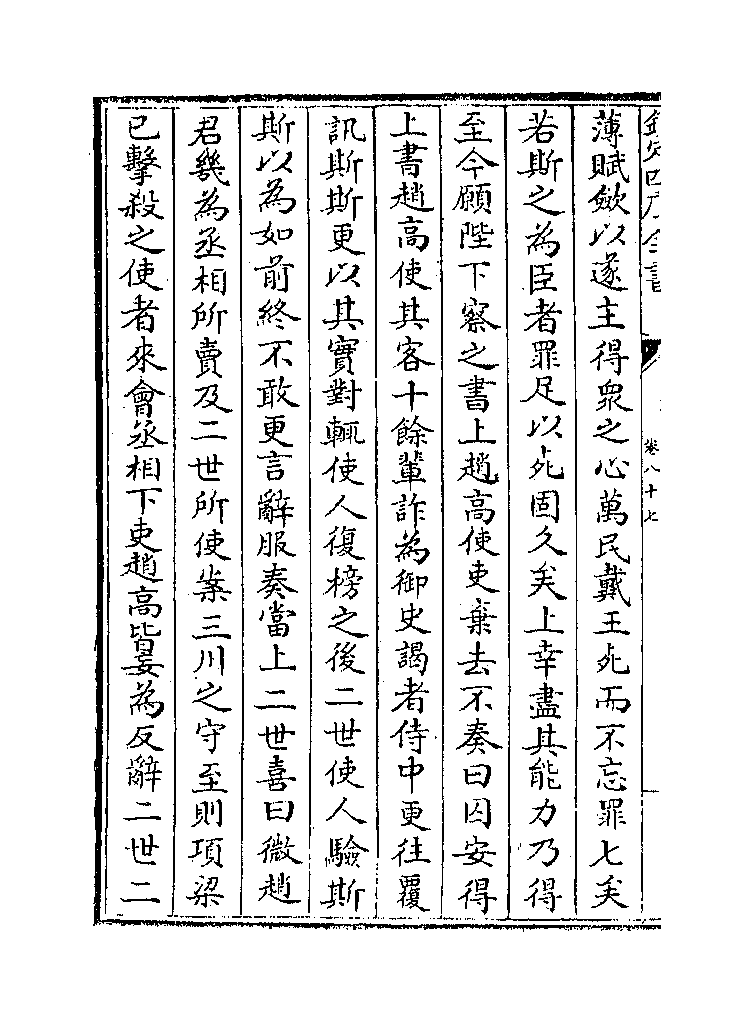 欽定四庫全書
卷八十七
薄賦斂以遂主得衆之心萬民戴王死而不忘罪七矣
若斯之為臣者罪足以死固久矣上幸盡其能力乃得
至今願陛下察之書上趙高使吏棄去不奏曰囚安得
上書趙高使其客十餘輩詐為御史謁者侍中更往覆
訊斯斯更以其實對輒使人復榜之後二世使人驗斯
斯以為如前終不敢更言辭服奏當上二世喜曰微趙
君幾為丞相所賣及二世所使案三川之守至則項梁
已擊殺之使者來會丞相下吏趙高皆妄為反辭二世二